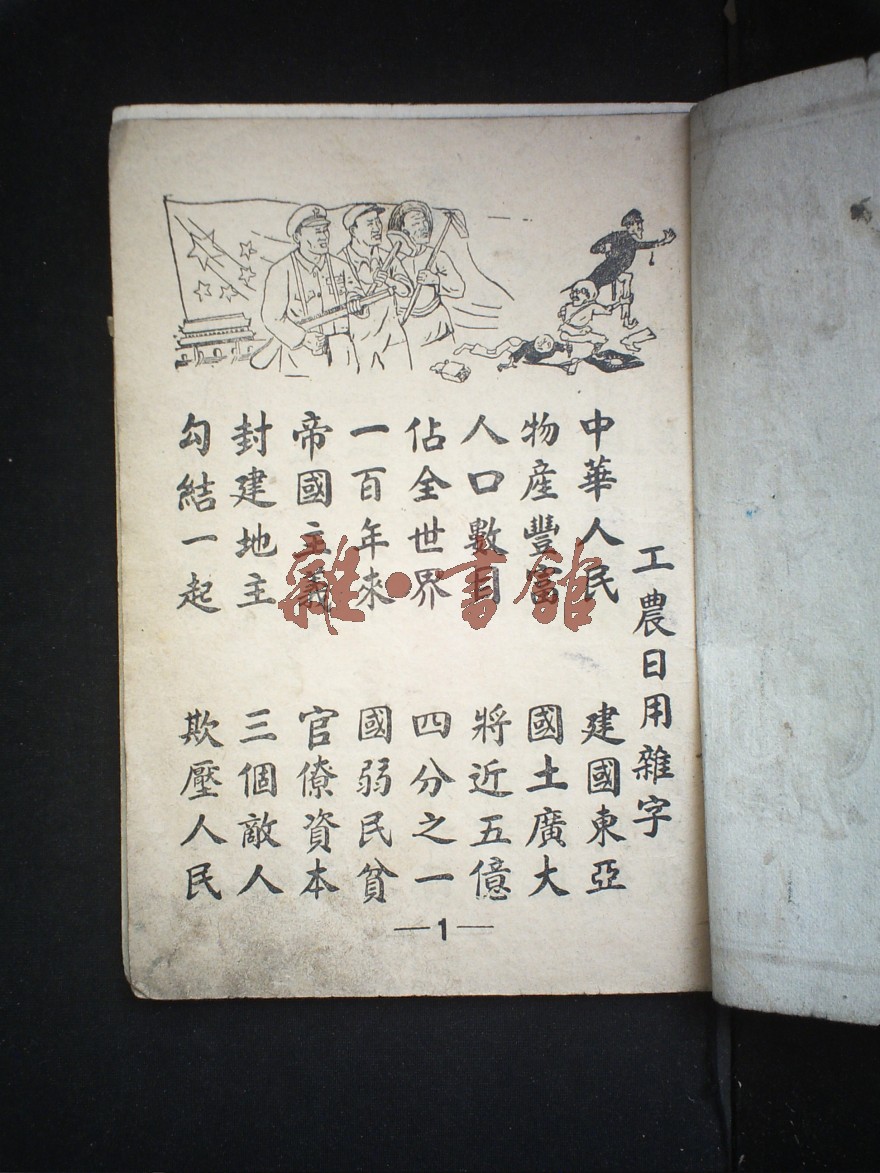 工農日用雜字
中華人民 建國東亞
物產豐富 國土廣大
人口數目 將近五億
佔全世界 四分之一
一百年來 國弱民貧
帝國主義 官僚資本
封建地主 三個敵人
勾結一起 欺壓人民
—1—
雜·書館